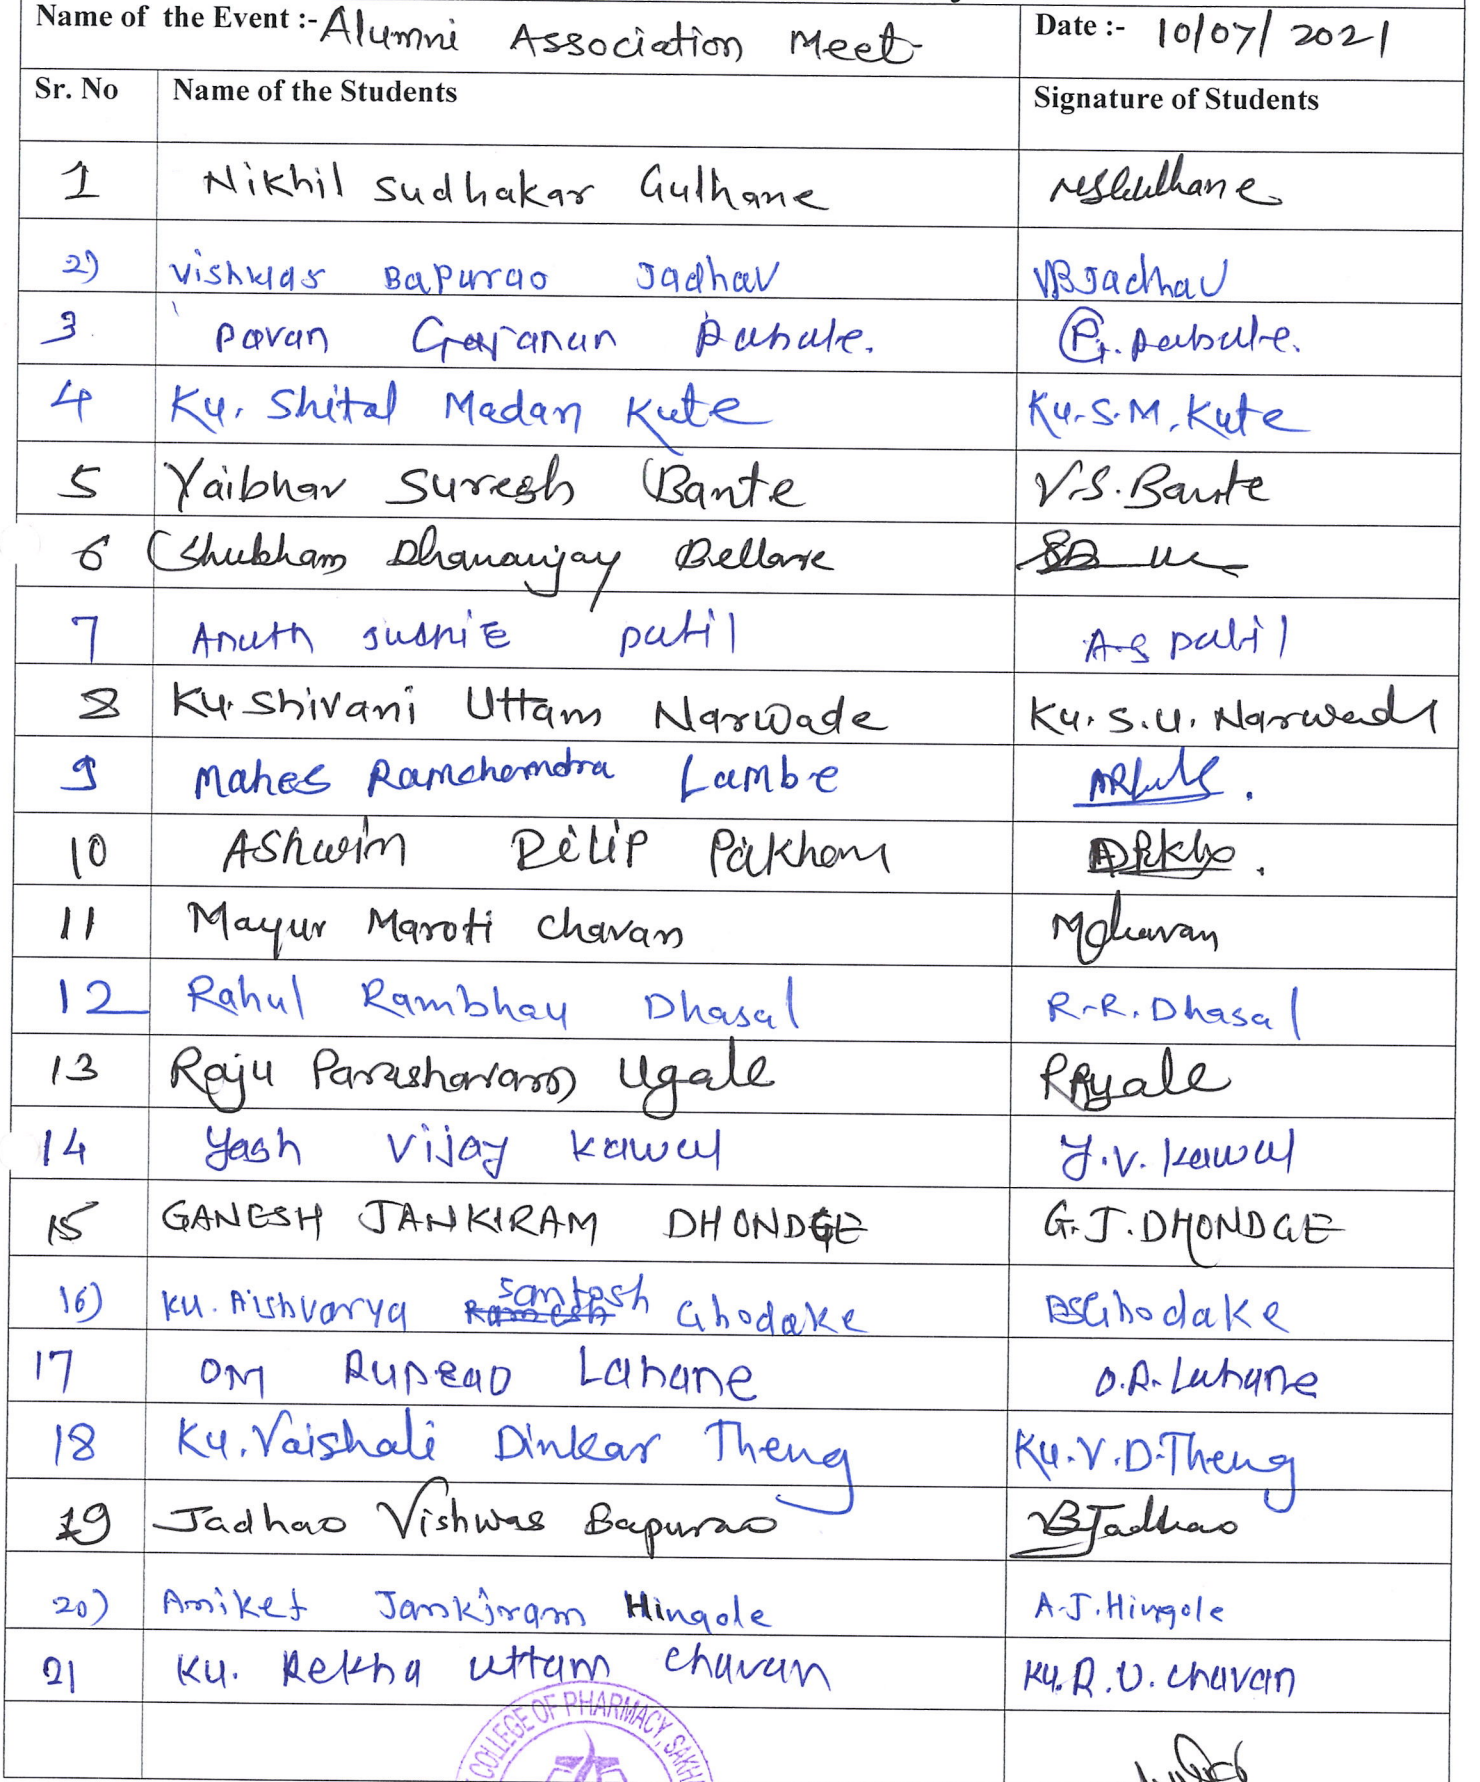 Name of the Event :- Alumni Association Meet Date :- 10/07/2021
Sr. No Name of the Students Signature of Students
1 Nikhil Sudhakar Gulhane NSGulhane
2) Vishwas Bapurao Jadhav VBJadhav
3 Pavan Gajanan Pabale. P.G. Pabale.
4 Ku. Shital Madan Kute Ku. S. M. Kute
5 Vaibhav Suresh Bante V.S. Bante
6 Shubham Dhananjay Bellare
7 patil A-S patil
8 Ku. Shivani Uttam Narwade Ku. S. U. Narwade
9 Mahes Ramchandra Lambe
10 Ashwin Dilip
11 Mayur Maroti Chavan MChavan
12 Rahul Rambhau Dhasal R.R. Dhasal
13 Raju Parasharam Ugale
14 Yash Vijay Kawal Y.V. Kawal
15 GANESH JANKIRAM DHONDGE G.J. DHONDGE
16) Ku. Aishvarya Santosh Ghodake ASGhodake
17 OM Ruprao Lahane O.R. Lahane
18 Ku. Vaishali Dinkar Theng Ku. V. D. Theng
19 Jadhao Vishwas Bapurao VBJadhao
20) Aniket Jankiram Hingole A.J. Hingole
21 Ku. Rekha Uttam Chavan Ku. R. U. Chavan
COLLEGE OF PHARMACY, SAKH